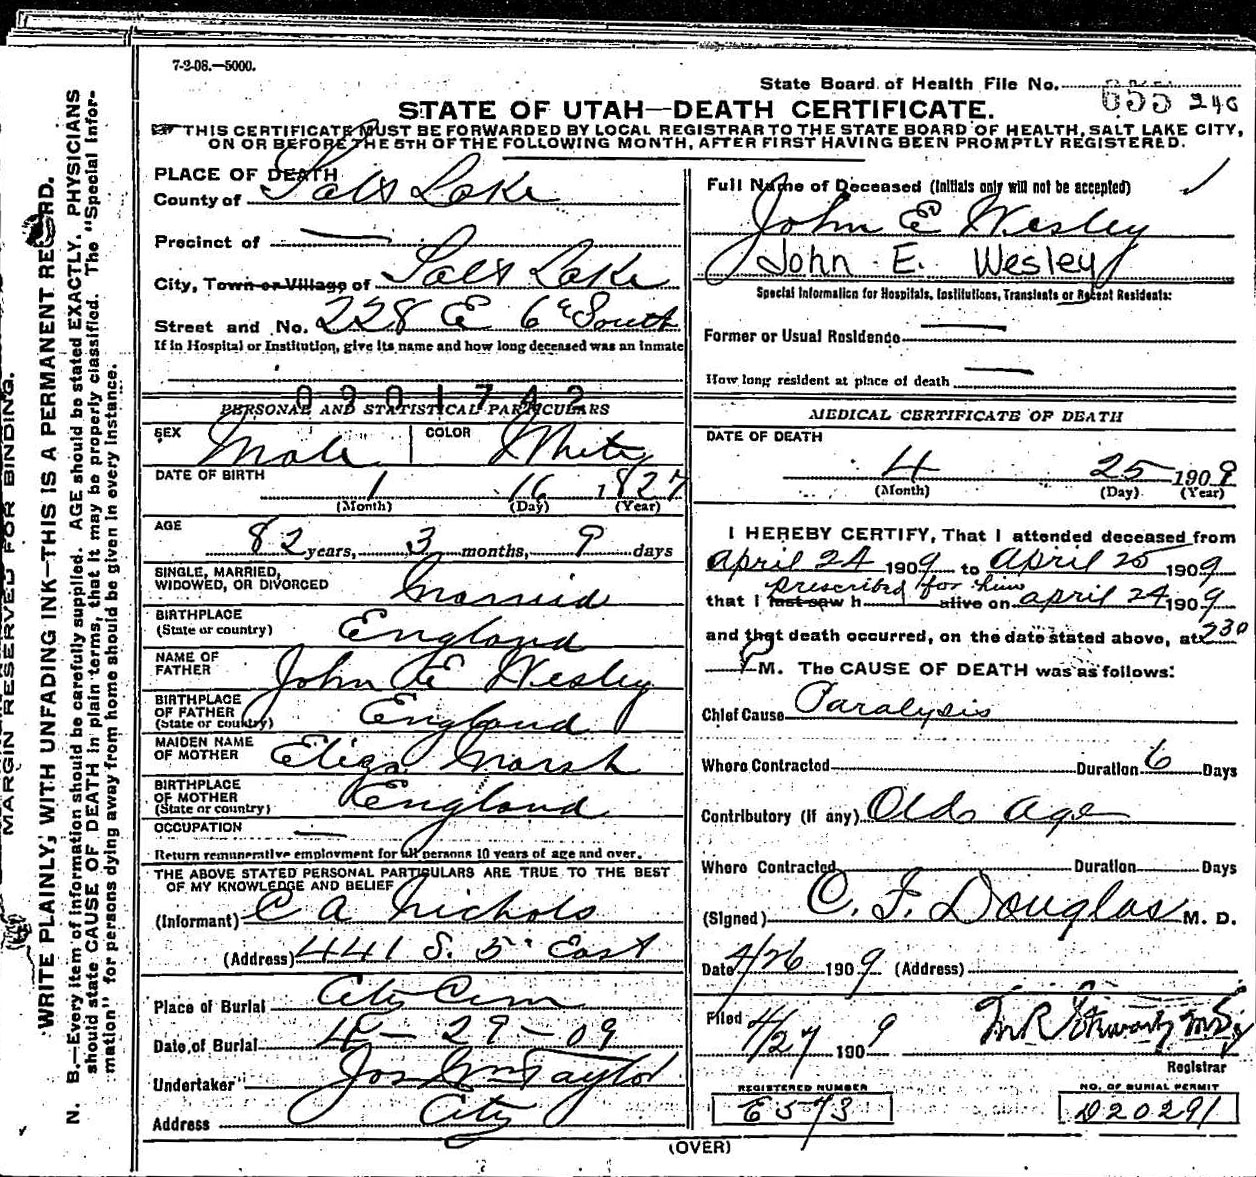 7-2-08.—5000.
State Board of Health File No. 655 246
STATE OF UTAH—DEATH CERTIFICATE.
THIS CERTIFICATE MUST BE FORWARDED BY LOCAL REGISTRAR TO THE STATE BOARD OF HEALTH, SALT LAKE CITY,
ON OR BEFORE THE 5TH OF THE FOLLOWING MONTH, AFTER FIRST HAVING BEEN PROMPTLY REGISTERED.
PLACE OF DEATH
County of Salt Lake
Precinct of —
City, Town or Village of Salt Lake
Street and No. 228 E 6th South
If in Hospital or Institution, give its name and how long deceased was an inmate
0901742
PERSONAL AND STATISTICAL PARTICULARS
SEX Male COLOR White
DATE OF BIRTH
1 16 1827
(Month) (Day) (Year)
AGE
82 years, 3 months, 9 days
SINGLE, MARRIED,
WIDOWED, OR DIVORCED Married
BIRTHPLACE
(State or country) England
NAME OF
FATHER John E Wesley
BIRTHPLACE
OF FATHER England
(State or country)
MAIDEN NAME
OF MOTHER Eliza Marsh
BIRTHPLACE
OF MOTHER England
(State or country)
OCCUPATION —
Return remunerative employment for all persons 10 years of age and over.
THE ABOVE STATED PERSONAL PARTICULARS ARE TRUE TO THE BEST
OF MY KNOWLEDGE AND BELIEF
(Informant) C A Nichols
(Address) 441 S. 5" East
Place of Burial City Cem
Date of Burial 4-29-09
Undertaker Jos Wm Taylor
Address City
Full Name of Deceased (Initials only will not be accepted)
John E Wesley
John E. Wesley
Special Information for Hospitals, Institutions, Transients or Recent Residents:
Former or Usual Residence —
How long resident at place of death —
MEDICAL CERTIFICATE OF DEATH
DATE OF DEATH
4 25 1909
(Month) (Day) (Year)
I HEREBY CERTIFY, That I attended deceased from
April 24 1909 to April 25 1909
prescribed for him
that I last saw h alive on April 24 1909
and that death occurred, on the date stated above, at 230
M. The CAUSE OF DEATH was as follows:
Chief Cause Paralysis
Where Contracted Duration 6 Days
Contributory (if any) Old Age
Where Contracted Duration Days
(Signed) C. F. Douglas M. D.
Date 4/26 1909 (Address)
Filed 4/27 1909
Registrar
REGISTERED NUMBER
E573
NO. OF BURIAL PERMIT
D20291
(OVER)
MARGIN RESERVED FOR BINDING.
WRITE PLAINLY, WITH UNFADING INK—THIS IS A PERMANENT RECORD.
N. B.—Every item of information should be carefully supplied. AGE should be stated EXACTLY. PHYSICIANS
should state CAUSE OF DEATH in plain terms, that it may be properly classified. The "Special Infor-
mation" for persons dying away from home should be given in every instance.